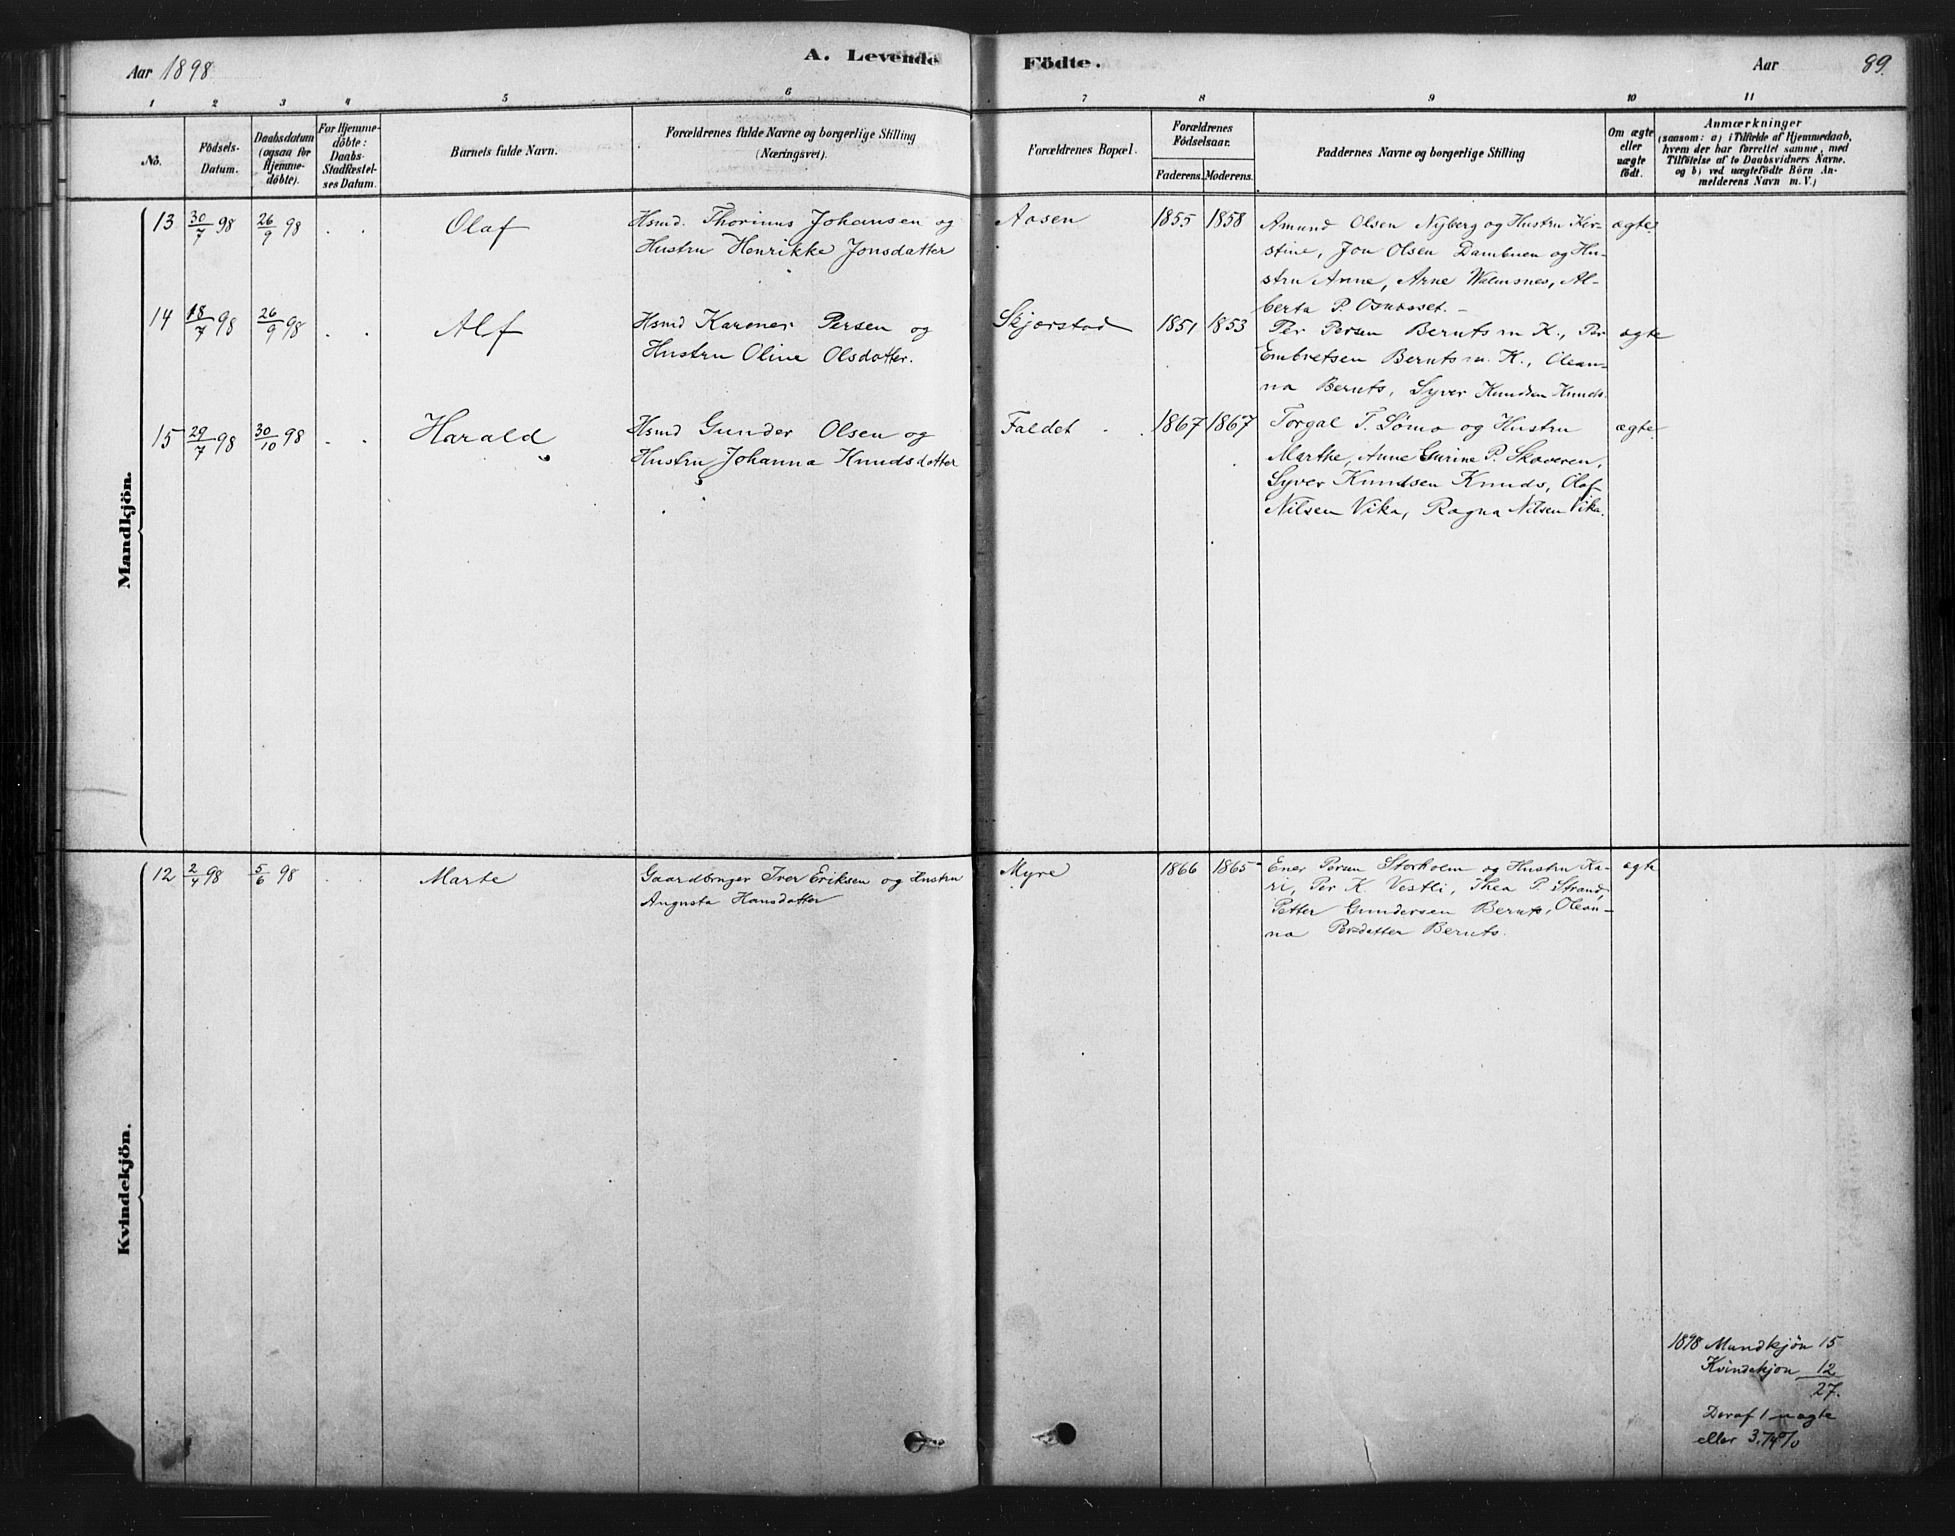 Aar 1898
A. Levende
Födte.
Aar
89.
1 2 3 4 5 6 7 8 9 10 11
No.
Födsels-
Datum.
Daabsdatum
(ogsaa for
Hjemme-
döbte).
For Hjemme-
döbte:
Daabs-
Stadfæstel-
ses Datum.
Barnets fulde Navn.
Forældrenes fulde Navne og borgerlige Stilling
(Næringsvei).
Forældrenes Bopæl.
Forældrenes
Födselsaar.
Faderens. Moderens.
Faddernes Navne og borgerlige Stilling
Om ægte
eller
uægte
födt.
Anmærkninger
(saasom: a) i Tilfælde af Hjemmedaab,
hvem der har forrettet samme, med
Tilföielse af to Daabsvidners Navne.
og b) ved uægtefödte Börn An-
melderens Navn m. V.)
Mandkjön.
13 30/7 98 26/9 98 . . Olaf
Hsmd. Thorinus Johansen og
Hustru Henrikke Jonsdatter
Aasen 1855 1858
Amund Olsen Nyberg og Hustru Kir-
stine, Jon Olsen Dambuen og Hu-
stru Anne, Arne Walmsnes, Al-
berta P. Osnesset. -
ægte
14 18/7 98 26/9 98 . . Alf
Hsmd Karener Persen og
Hustru Oline Olsdatter.
Skjærstad 1851 1853
Per Persen Bernts m K., Per
Embretsen Bernts m. K., Olean-
na Bernts, Syver Knudsen Knuds.
ægte
15 29/7 98 30/10 98 . . Harald
Hsmd Gunder Olsen og
Hustru Johanna Knudsdatter
Faldet . . 1867 1867
Torgal T. Sömo og Hustru
Marthe, Anne Gurine P. Skoveren,
Syver Knudsen Knuds, Olaf
Nilsen Vika, Ragna Nilsen Vika.
ægte
Kvindekjön.
12 2/4 98 5/6 98 . . Marte
Gaardbruger Iver Eriksen og Hustru
Augusta Hansdatter
Myre 1866 1865
Ener Persen Storholm og Hustru Ka-
ri, Per K. Vestli, Thea P. Strand,
Petter Gundersen Bernts, Olean-
na Persdatter Bernts.
ægte
1898 Mandkjön 15
Kvindekjön 12
27.
Deraf 1 uægte
eller 3.74%